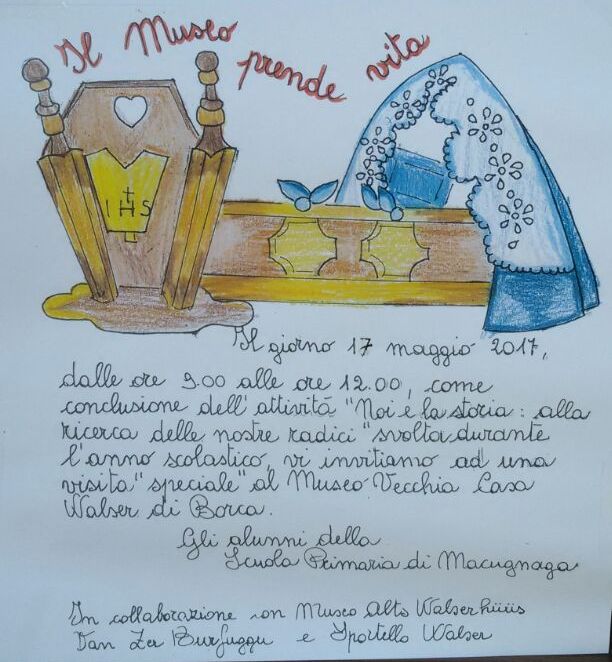 Il Museo prende vita
IHS
Il giorno 17 maggio 2017,
dalle ore 9.00 alle ore 12.00, come
conclusione dell'attivitá "Noi e la storia: alla
ricerca delle nostre radici" svolta durante
l'anno scolastico, vi invitiamo ad una
visita "speciale" al Museo Vecchia Casa
Walser di Borca.
Gli alunni della
Scuola Primaria di Macugnaga
In collaborazione con Museo Alts Walserhüüs
Van Zer Burfuggu e Sportello Walser